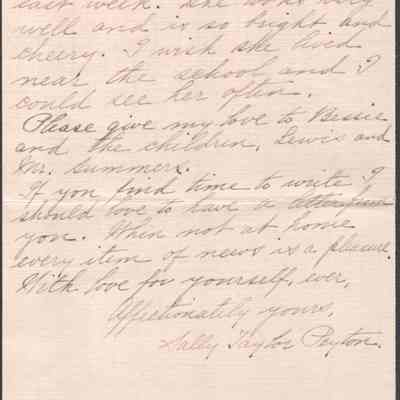 last week. She looks very
well and is so bright and
cheery. I wish she lived
near the school and I
could see her often.
Please give my love to Bessie
and the children, Lewis and
Mr. Summers.
If you find time to write I
should love to have a letter from
you. When not at home
every item of news is a pleasure.
With love for yourself, ever,
Affectionately yours,
Sally Taylor Peyton.